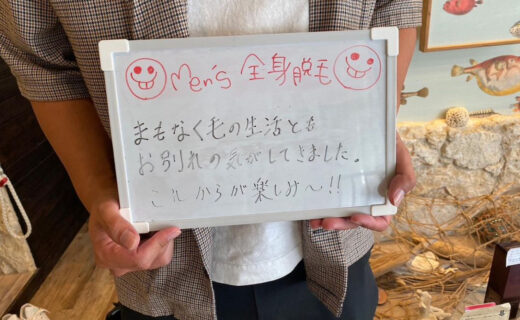 Men's 全身脱毛
まもなく毛の生活とも
お別れの気がしてきました。
これからが楽しみ〜!!